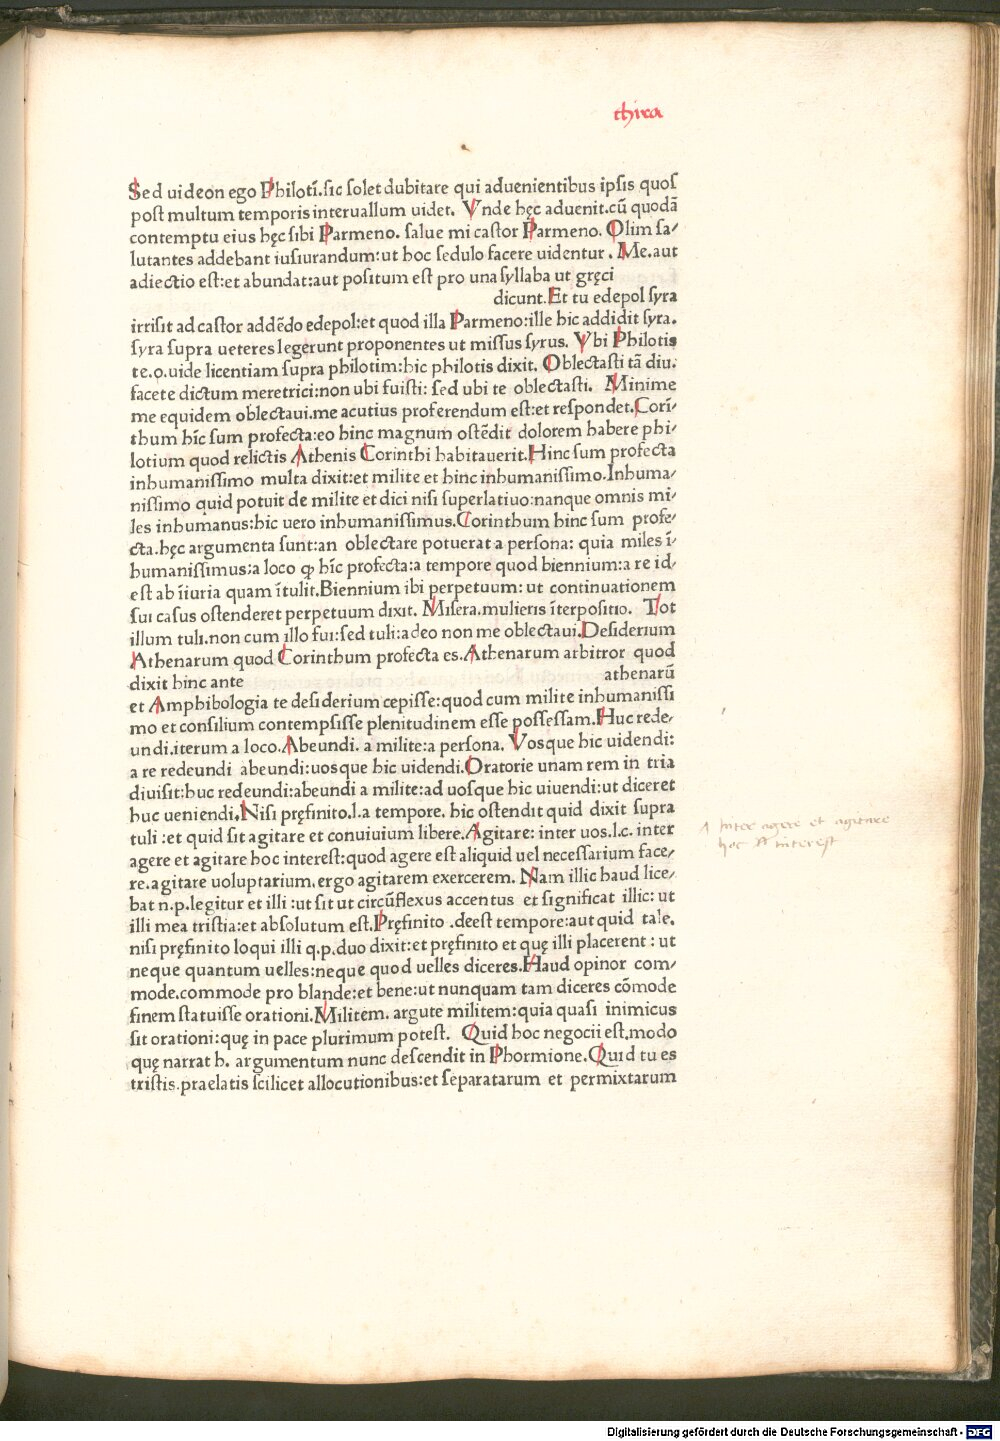 thira
Sed uideon ego Philotī.sic solet dubitare qui aduenientibus ipsis quos
post multum temporis interuallum uidet. Vnde hęc aduenit.cū quodā
contemptu eius hęc sibi Parmeno. salue mi castor Parmeno. Olim sa/
lutantes addebant iusiurandum:ut hoc sedulo facere uidentur . Me.aut
adiectio est:et abundat:aut positum est pro una syllaba ut gręci
dicunt.Et tu edepol syra
irrisit ad castor addēdo edepol:et quod illa Parmeno:ille hic addidit syra.
syra supra ueteres legerunt proponentes ut missus syrus. Vbi Philotis
te.o.uide licentiam supra philotim:hic philotis dixit. Oblectasti tā diu.
facete dictum meretrici:non ubi fuisti: sed ubi te oblectasti. Minime
me equidem oblectaui.me acutius proferendum est:et respondet.Cori/
thum hīc sum profecta:eo hinc magnum ostēdit dolorem habere phi/
lotium quod relictis Athenis Corinthi habitauerit.Hinc sum profecta
inhumanissimo multa dixit:et milite et hinc inhumanissimo.Inhuma/
nissimo quid potuit de milite et dici nisi superlatiuo:nanque omnis mi/
les inhumanus:hic uero inhumanissimus.Corinthum hinc sum profe/
cta.hęc argumenta sunt:an oblectare potuerat a persona: quia miles ī/
humanissimus:a loco ꝙ hīc profecta:a tempore quod biennium:a re id/
est ab īiuria quam ītulit.Biennium ibi perpetuum: ut continuationem
sui casus ostenderet perpetuum dixit. Misera.mulieris īterpositio. Tot
illum tuli.non cum illo fui:sed tuli:adeo non me oblectaui.Desiderium
Athenarum quod Corinthum profecta es.Athenarum arbitror quod
dixit hinc ante athenarū
et Amphibologia te desiderium cepisse:quod cum milite inhumanissi
mo et consilium contempsisse plenitudinem esse possessam.Huc rede/
undi.iterum a loco.Abeundi. a milite:a persona. Vosque hic uidendi:
a re redeundi abeundi:uosque hic uidendi.Oratorie unam rem in tria
diuisit:huc redeundi:abeundi a milite:ad uosque hic uiuendi:ut diceret
huc ueniendi.Nisi pręfinito.l.a tempore. hic ostendit quid dixit supra
tuli :et quid sit agitare et conuiuium libere.Agitare: inter uos.l.c. inter
agere et agitare hoc interest:quod agere est aliquid uel necessarium face/
re.agitare uoluptarium.ergo agitarem exercerem. Nam illic haud lice/
bat n.p.legitur et illi :ut sit ut circūflexus accentus et significat illic: ut
illi mea tristia:et absolutum est.Pręfinito .deest tempore:aut quid tale.
nisi pręfinito loqui illi q.p.duo dixit:et pręfinito et quę illi placerent : ut
neque quantum uelles:neque quod uelles diceres.Haud opinor com/
mode.commode pro blande:et bene:ut nunquam tam diceres cōmode
finem statuisse orationi.Militem. argute militem:quia quasi inimicus
sit orationi:quę in pace plurimum potest. Quid hoc negocii est.modo
quę narrat h. argumentum nunc descendit in Phormione.Quid tu es
tristis.praelatis scilicet allocutionibus:et separatarum et permixtarum
inter agere et agitare
hoc interest
Digitalisierung gefördert durch die Deutsche Forschungsgemeinschaft - DFG